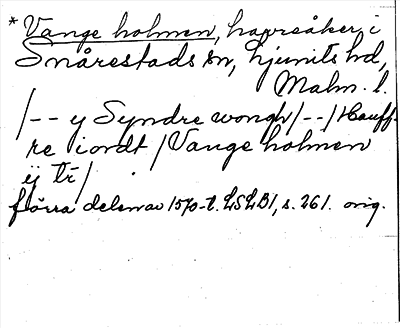 * Vange holmen, havreåker, i
Snårestads sn, Ljunits hd,
Malm. l.
/-- y Syndre wongh/--/Hauff-
re iordt/Vange holmen
ij tr/
förra delen av 1570-t. LSLB1, s. 261. orig.